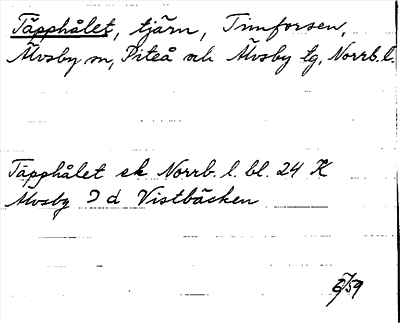 Täpphålet, tjärn, Timforsen,
Älvsby sn, Piteå och Älvsby tg, Norrb. l.
Täpphålet ek Norrb. l. bl. 24 K
Älvsby 9 d Vistbäcken